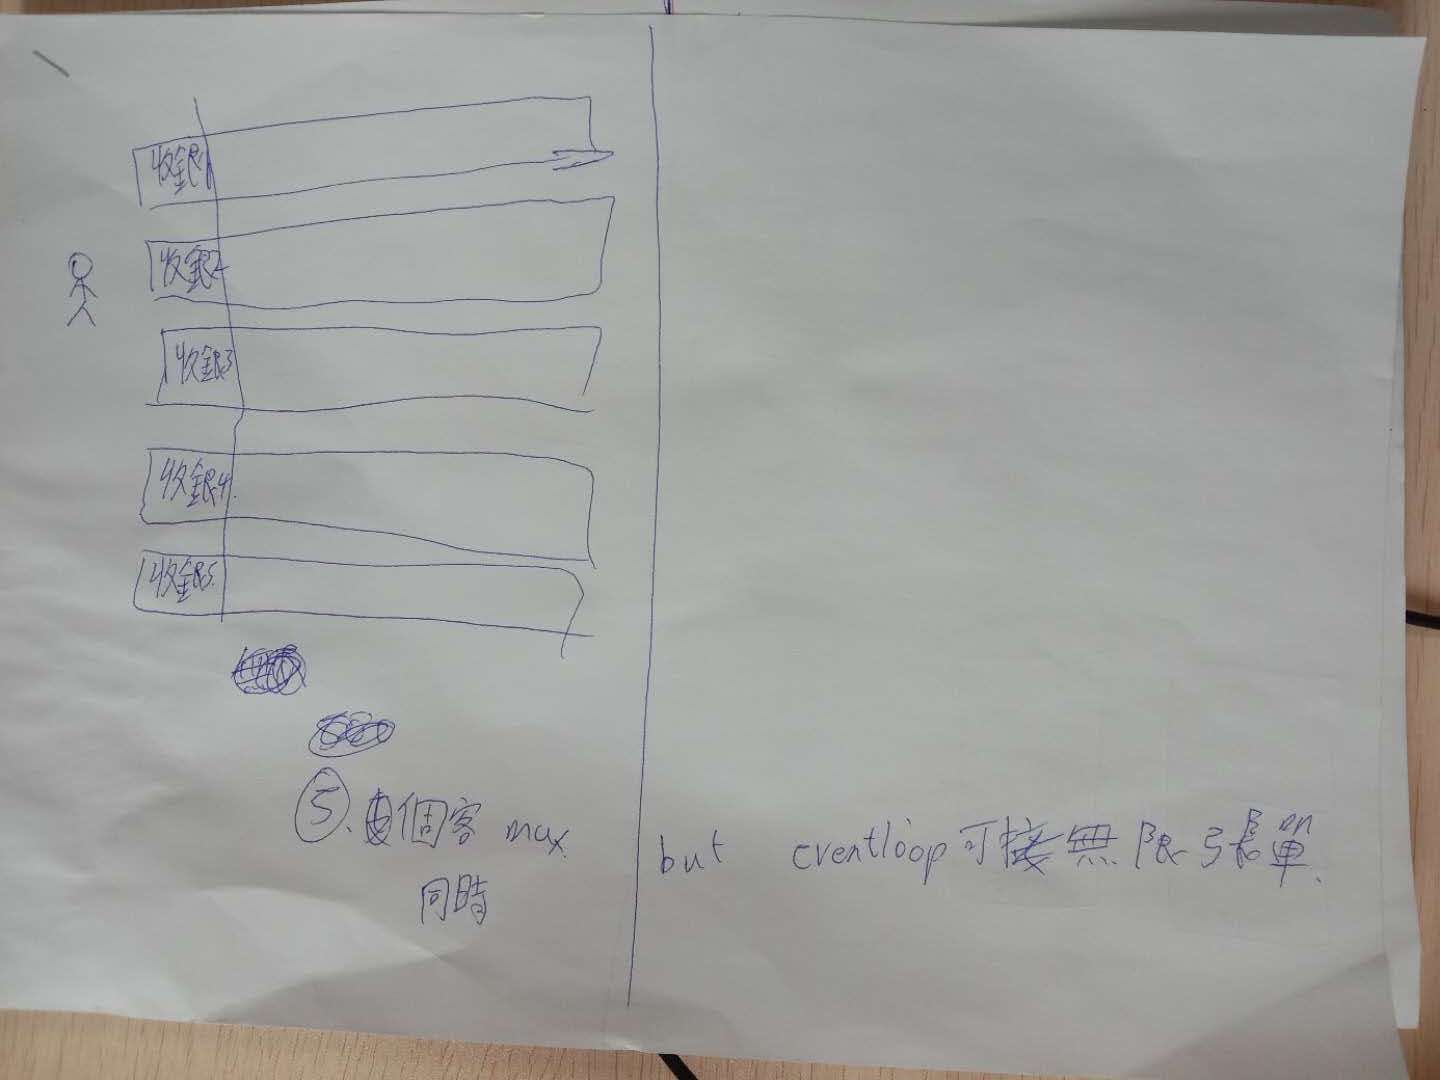 收銀1
收銀2
收銀3
收銀4
收銀5
⑤個客 max.
同時
but eventloop可接無限張單.